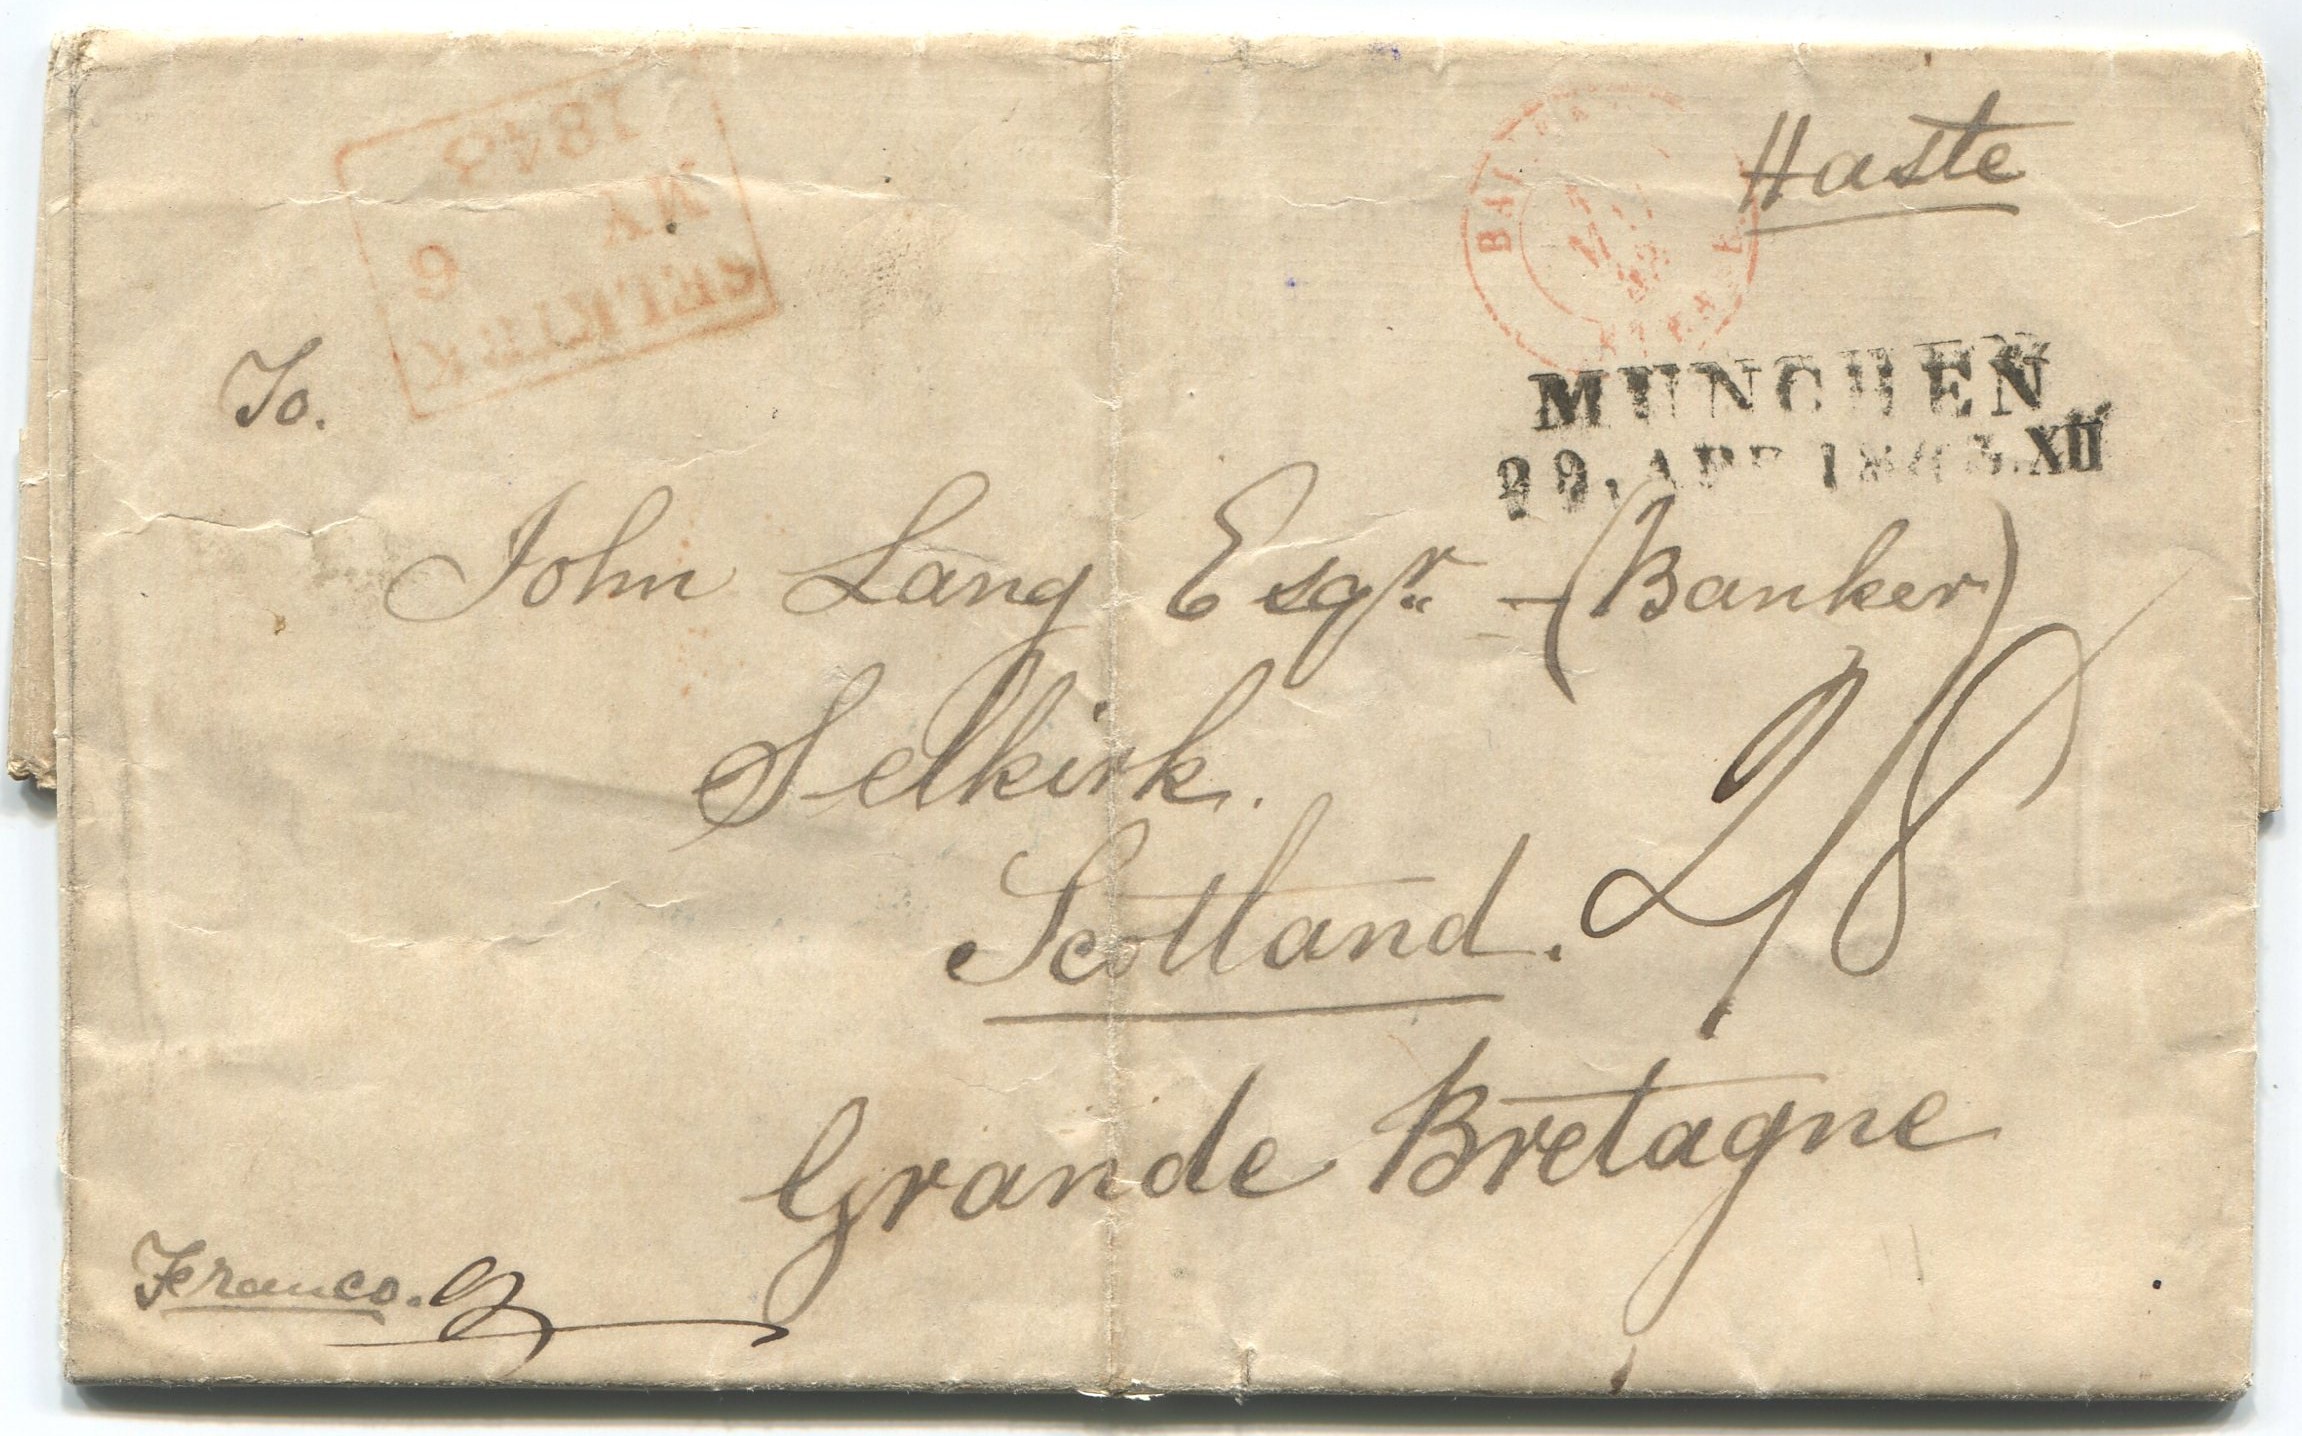 Haste
SELKIRK
MY 6
1843
MUNCHEN
29. APR 1843. XII
To.
John Lang Esqr. - (Banker)
Selkirk.
Scotland.
Grande Bretagne
Franco.